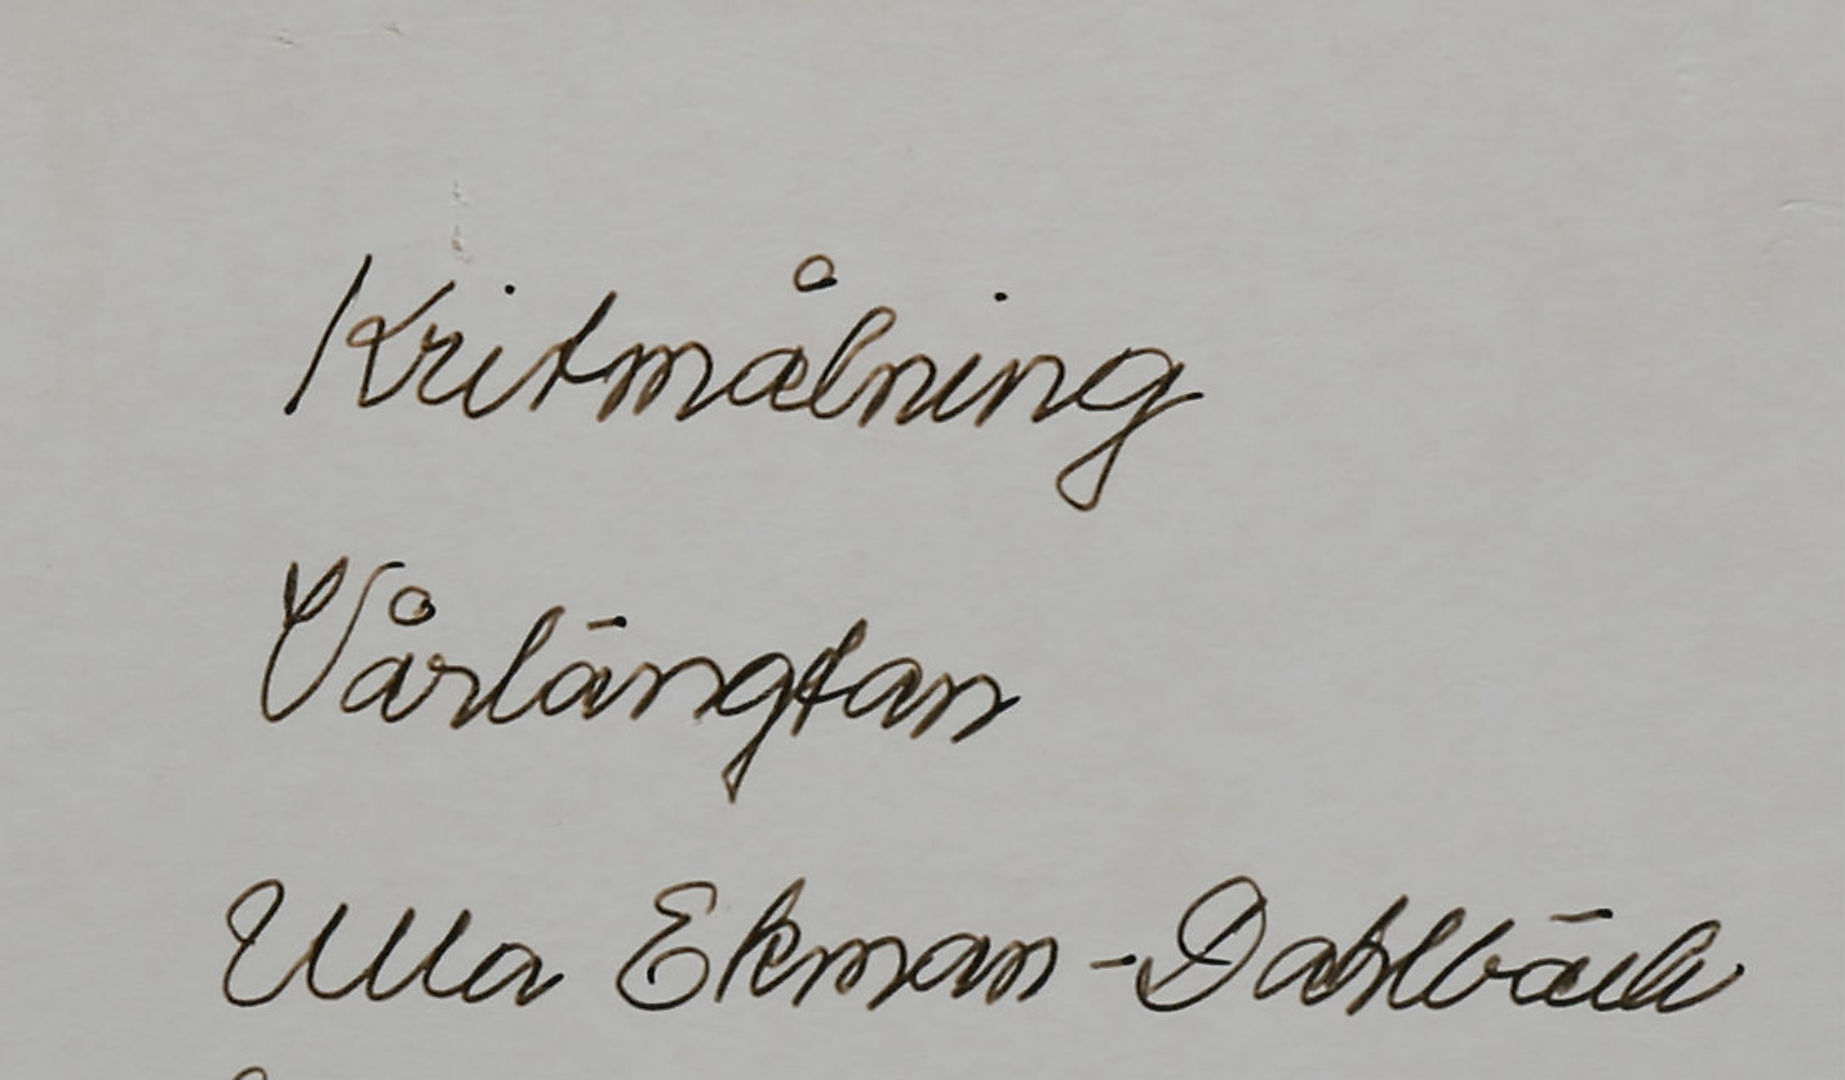 Kritmålning
Vårlängtan
Ulla Ekman-Dahlbäck